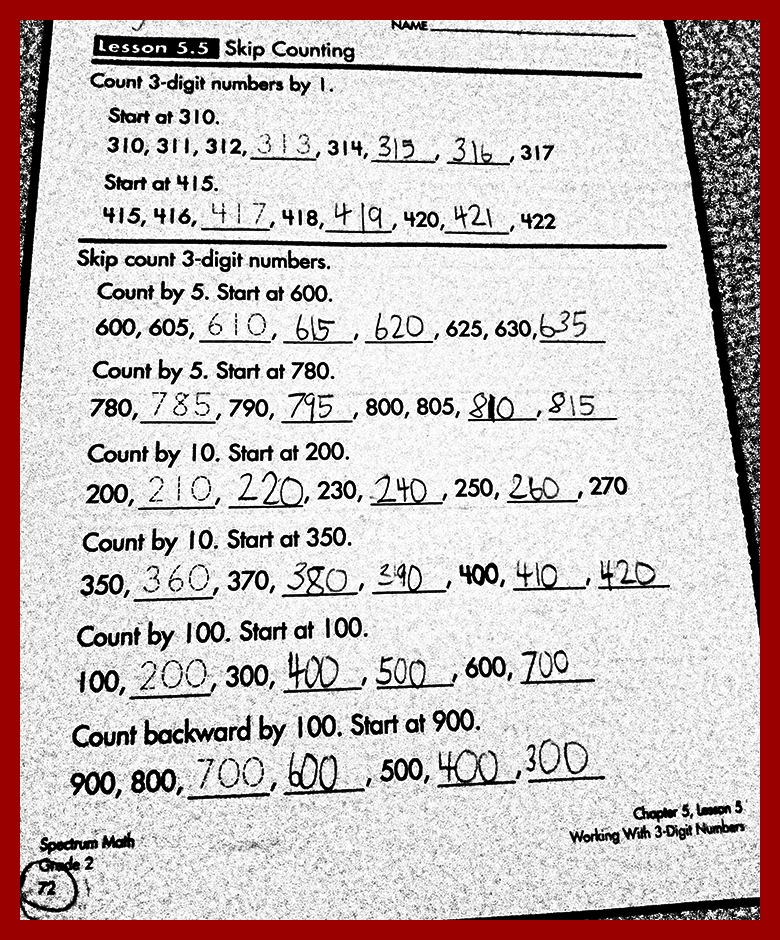 NAME
Lesson 5.5 Skip Counting
Count 3-digit numbers by 1.
Start at 310.
310, 311, 312, 313, 314, 315, 316, 317
Start at 415.
415, 416, 417, 418, 419, 420, 421, 422
Skip count 3-digit numbers.
Count by 5. Start at 600.
600, 605, 610, 615, 620, 625, 630, 635
Count by 5. Start at 780.
780, 785, 790, 795, 800, 805, 810, 815
Count by 10. Start at 200.
200, 210, 220, 230, 240, 250, 260, 270
Count by 10. Start at 350.
350, 360, 370, 380, 390, 400, 410, 420
Count by 100. Start at 100.
100, 200, 300, 400, 500, 600, 700
Count backward by 100. Start at 900.
900, 800, 700, 600, 500, 400, 300
Chapter 5, Lesson 5
Working With 3-Digit Numbers
Spectrum Math
Grade 2
72